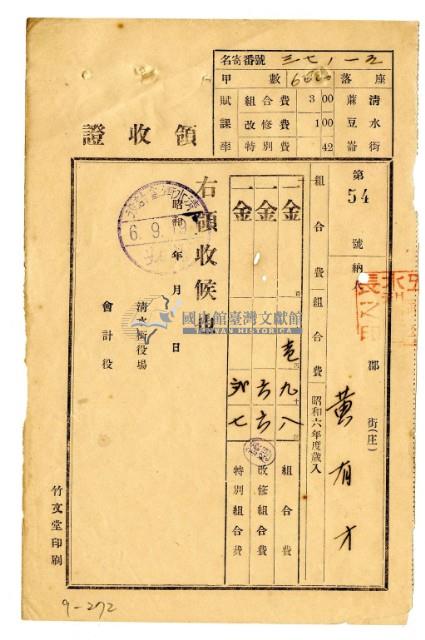 領收證
名寄番號 三七、一一五
甲數 落座
賦課率
組合費 3 00
改修費 1 00
特別費 42
清水街
蔴豆崙
第54號
納人
郡
街(庄)
黃有才
組合費 組合費 昭和六年度歲入
一金 壱 九 八 組合費
一金 六 六 改修組合費
一金 弐 七 特別組合費
右領收候也
昭和 年 月 日
6.9.19
清水街役場
會計役
竹文堂印刷
國史館臺灣文獻館
TAIWAN HISTORICA
9-272